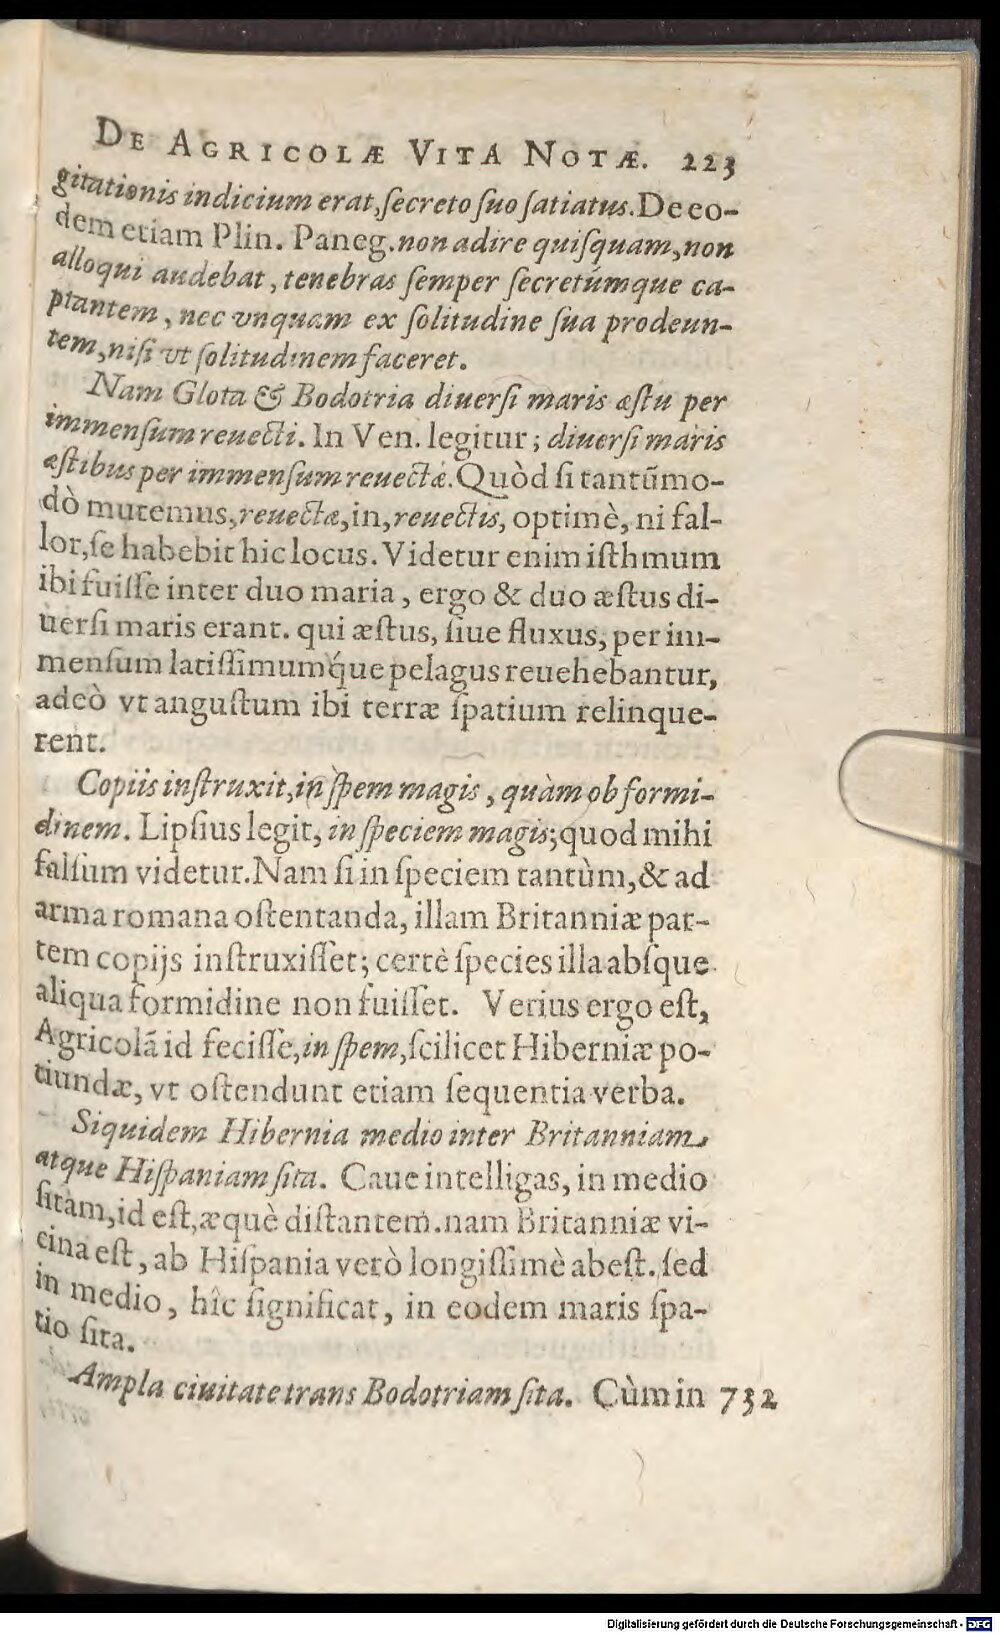 DE AGRICOLÆ VITA NOTÆ. 223
gitationis indicium erat, ſecreto ſuo ſatiatus. De eo-
dem etiam Plin. Paneg. non adire quiſquam, non
alloqui audebat, tenebras ſemper ſecretúmque ca-
ptantem, nec vnquam ex ſolitudine ſua prodeun-
tem, niſi vt ſolitudinem faceret.
Nam Glota & Bodotria diuerſi maris æſtu per
immenſum reuecti. In Ven. legitur; diuerſi maris
æſtibus per immenſum reuectæ. Quòd ſi tantũmo-
dò mutemus, reuectæ, in, reuectis, optimè, ni fal-
lor, ſe habebit hic locus. Videtur enim iſthmum
ibi fuiſſe inter duo maria, ergo & duo æſtus di-
uerſi maris erant. qui æſtus, ſiue fluxus, per im-
menſum latiſſimumq́ue pelagus reuehebantur,
adeò vt anguſtum ibi terræ ſpatium relinque-
rent.
Copiis inſtruxit, in ſpem magis, quàm ob formi-
dinem. Lipſius legit, in ſpeciem magis; quod mihi
falſum videtur. Nam ſi in ſpeciem tantùm, & ad
arma romana oſtentanda, illam Britanniæ par-
tem copijs inſtruxiſſet; certè ſpecies illa abſque
aliqua formidine non fuiſſet. Verius ergo eſt,
Agricolã id feciſſe, in ſpem, ſcilicet Hiberniæ po-
tiundæ, vt oſtendunt etiam ſequentia verba.
Siquidem Hibernia medio inter Britanniam
atque Hiſpaniam ſita. Caue intelligas, in medio
ſitam, id eſt, æquè diſtantem. nam Britanniæ vi-
cina eſt, ab Hiſpania verò longiſſimè abeſt. ſed
in medio, hîc ſignificat, in eodem maris ſpa-
tio ſita.
Ampla ciuitate trans Bodotriam ſita. Cùm in 732
Digitalisierung gefördert durch die Deutsche Forschungsgemeinschaft - DFG